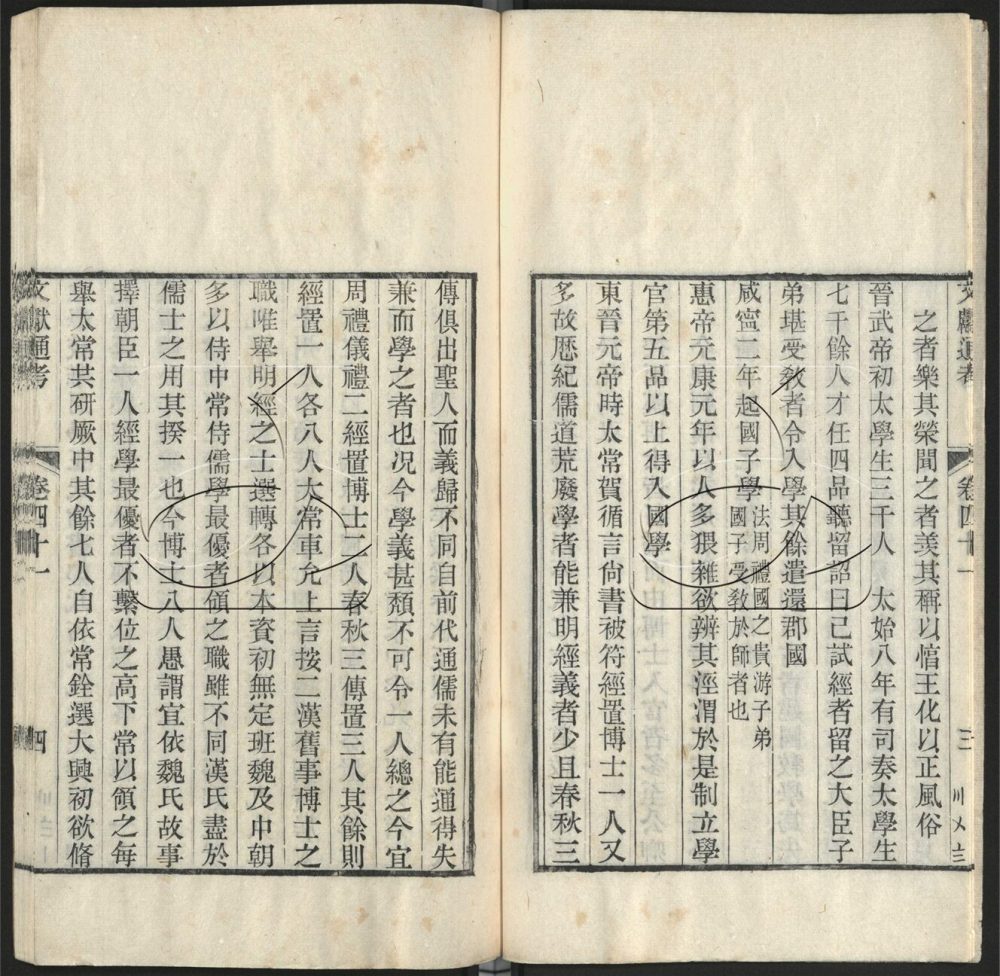 文獻通考 卷四十一 三
之者樂其榮聞之者羡其稱以惰王化以正風俗
晉武帝初太學生三千人 太始八年有司奏太學生
七千餘人才任四品聽留詔曰已試經者留之大臣子
弟堪受敎者令入學其餘遣還郡國
咸寧二年起國子學法周禮國之貴游子弟
國子受敎於師者也
惠帝元康元年以人多猥雜欲辨其涇渭於是制立學
官第五品以上得入國學
東晉元帝時太常賀循言尙書被符經置博士一人又
多故厯紀儒道荒廢學者能兼明經義者少且春秋三
傳俱出聖人而義歸不同自前代通儒未有能通得失
兼而學之者也况今學義甚頽不可令一人總之今宜
周禮儀禮二經置博士二人春秋三傳置三人其餘則
經置一人各八人太常車允上言按二漢舊事博士之
職唯舉明經之士選轉各以本資初無定班魏及中朝
多以侍中常侍儒學最優者領之職雖不同漢氏盡於
儒士之用其揆一也今博士八人愚謂宜依魏氏故事
擇朝臣一人經學最優者不繫位之高下常以領之每
舉太常共研厥中其餘七人自依常銓選大興初欲脩
文獻通考 卷四十一 四